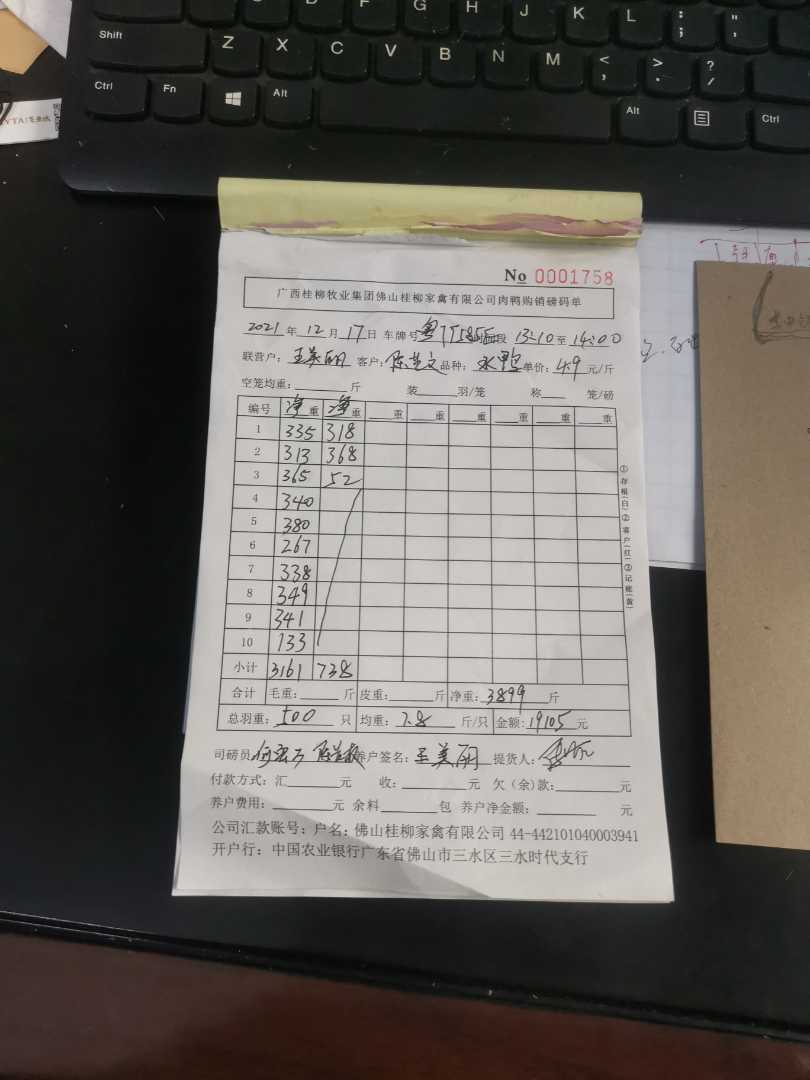 Shift Z X C V B N M < , > . ? /
Ctrl Fn Alt Alt Ctrl
No 0001758
广西桂柳牧业集团佛山桂柳家禽有限公司肉鸭购销磅码单
2021年12月17日 车牌号 粤 段 13:10至14:00
联营户：王美丽 客户：陈 文 品种：水鸭 单价：4.9元/斤
空笼均重：斤 装 羽/笼 称 笼/磅
编号 净重 净重 重 重 重 重 重 重
1 335 318
2 313 368
3 365 52
4 340
5 380
6 267
7 338
8 349
9 341
10 133
小计 3161 738
合计 毛重：斤 皮重：斤 净重：3899斤
总羽重：500只 均重：7.8斤/只 金额：19105元
司磅员 养户签名：王美丽 提货人：
付款方式：汇 元 收：元 欠（余）款：元
养户费用：元 余料 包 养户净金额：元
公司汇款账号：户名：佛山桂柳家禽有限公司 44-442101040003941
开户行：中国农业银行广东省佛山市三水区三水时代支行
①存根(白)②客户(红)③记账(黄)